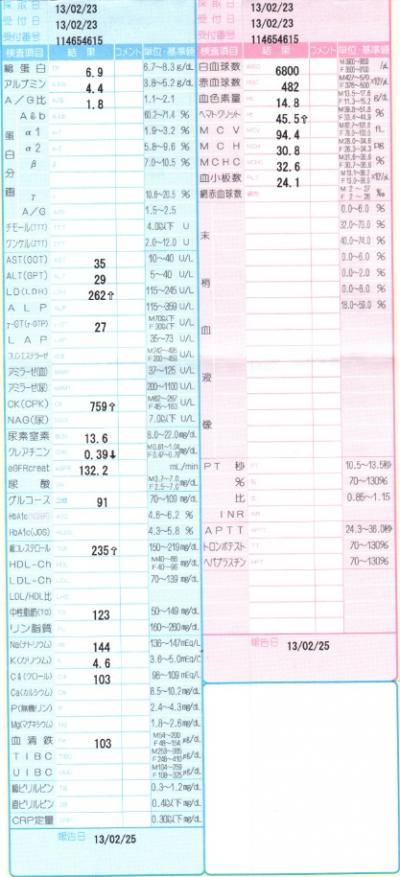 採取日 13/02/23
受付日 13/02/23
受付番号 114654615
検査項目 結果 コメント 単位・基準値
総蛋白 6.9 6.7~8.3g/dL
アルブミン 4.4 3.8~5.2g/dL
A/G比 1.8 1.1~2.1
Alb 60.2~71.4 %
蛋白分画
α1 1.9~3.2 %
α2 5.8~9.6 %
β 7.0~10.5 %
γ 10.6~20.5 %
A/G 1.5~2.5
チモール(TTT) 4.0以下 U
クンケル(ZTT) 2.0~12.0 U
AST(GOT) 35 10~40 U/L
ALT(GPT) 29 5~40 U/L
LD(LDH) 262⇧ 115~245 U/L
ALP 115~359 U/L
γ-GT(γ-GTP) 27 M70以下 F30以下 U/L
LAP 35~73 U/L
コリンエステラーゼ U/L
アミラーゼ(血) 37~125 U/L
アミラーゼ(尿) 200~1100 U/L
CK(CPK) 759⇧ M62~287 F45~163 U/L
NAG(尿) 7.0以下 U/L
尿素窒素 13.6 8.0~22.0mg/dL
クレアチニン 0.39⬇ M0.61~1.04 F0.47~0.79 mg/dL
eGFRcreat 132.2 mL/min
尿酸 M3.7~7.0 F2.5~7.0 mg/dL
グルコース 91 70~109 mg/dL
HbA1c 4.6~6.2 %
HbA1c(JDS) 4.3~5.8 %
総コレステロール 235⇧ 150~219mg/dL
HDL-Ch M40~86 F40~96 mg/dL
LDL-Ch 70~139 mg/dL
LDL/HDL比
中性脂肪(TG) 123 50~149 mg/dL
リン脂質 160~260mg/dL
Na(ナトリウム) 144 136~147mEq/L
K(カリウム) 4.6 3.6~5.0mEq/L
Cl(クロール) 103 98~109 mEq/L
Ca(カルシウム) 8.5~10.2mg/dL
P(無機リン) 2.4~4.3mg/dL
Mg(マグネシウム) 1.8~2.6mg/dL
血清鉄 103 M54~200 F48~154 μg/dL
TIBC μg/dL
UIBC M104~259 F108~325 μg/dL
総ビリルビン 0.3~1.2mg/dL
直ビリルビン 0.4以下mg/dL
CRP定量 0.30以下mg/dL
報告日 13/02/25
採取日 13/02/23
受付日 13/02/23
受付番号 114654615
検査項目 結果 コメント 単位・基準値
白血球数 6800 /μL
赤血球数 482
血色素量 14.8 g/dL
ヘマトクリット 45.5⇧ %
MCV 94.4 fL
MCH 30.8 pg
MCHC 32.6 %
血小板数 24.1
網赤血球数 ‰
末梢血液像
0.0~6.0 %
32.0~73.0 %
40.0~74.0 %
0.0~6.0 %
0.0~2.0 %
0.0~6.0 %
18.0~59.0 %
PT 秒 10.5~13.5秒
% 70~130%
比 0.85~1.15
INR
APTT 24.3~36.0秒
トロンボテスト 70~130%
ヘパプラスチン 70~130%
報告日 13/02/25